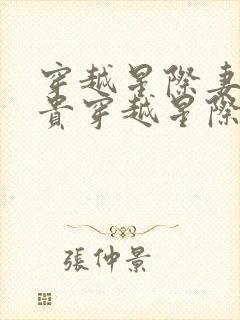 穿越星際妻
貴穿越星際
張仲景